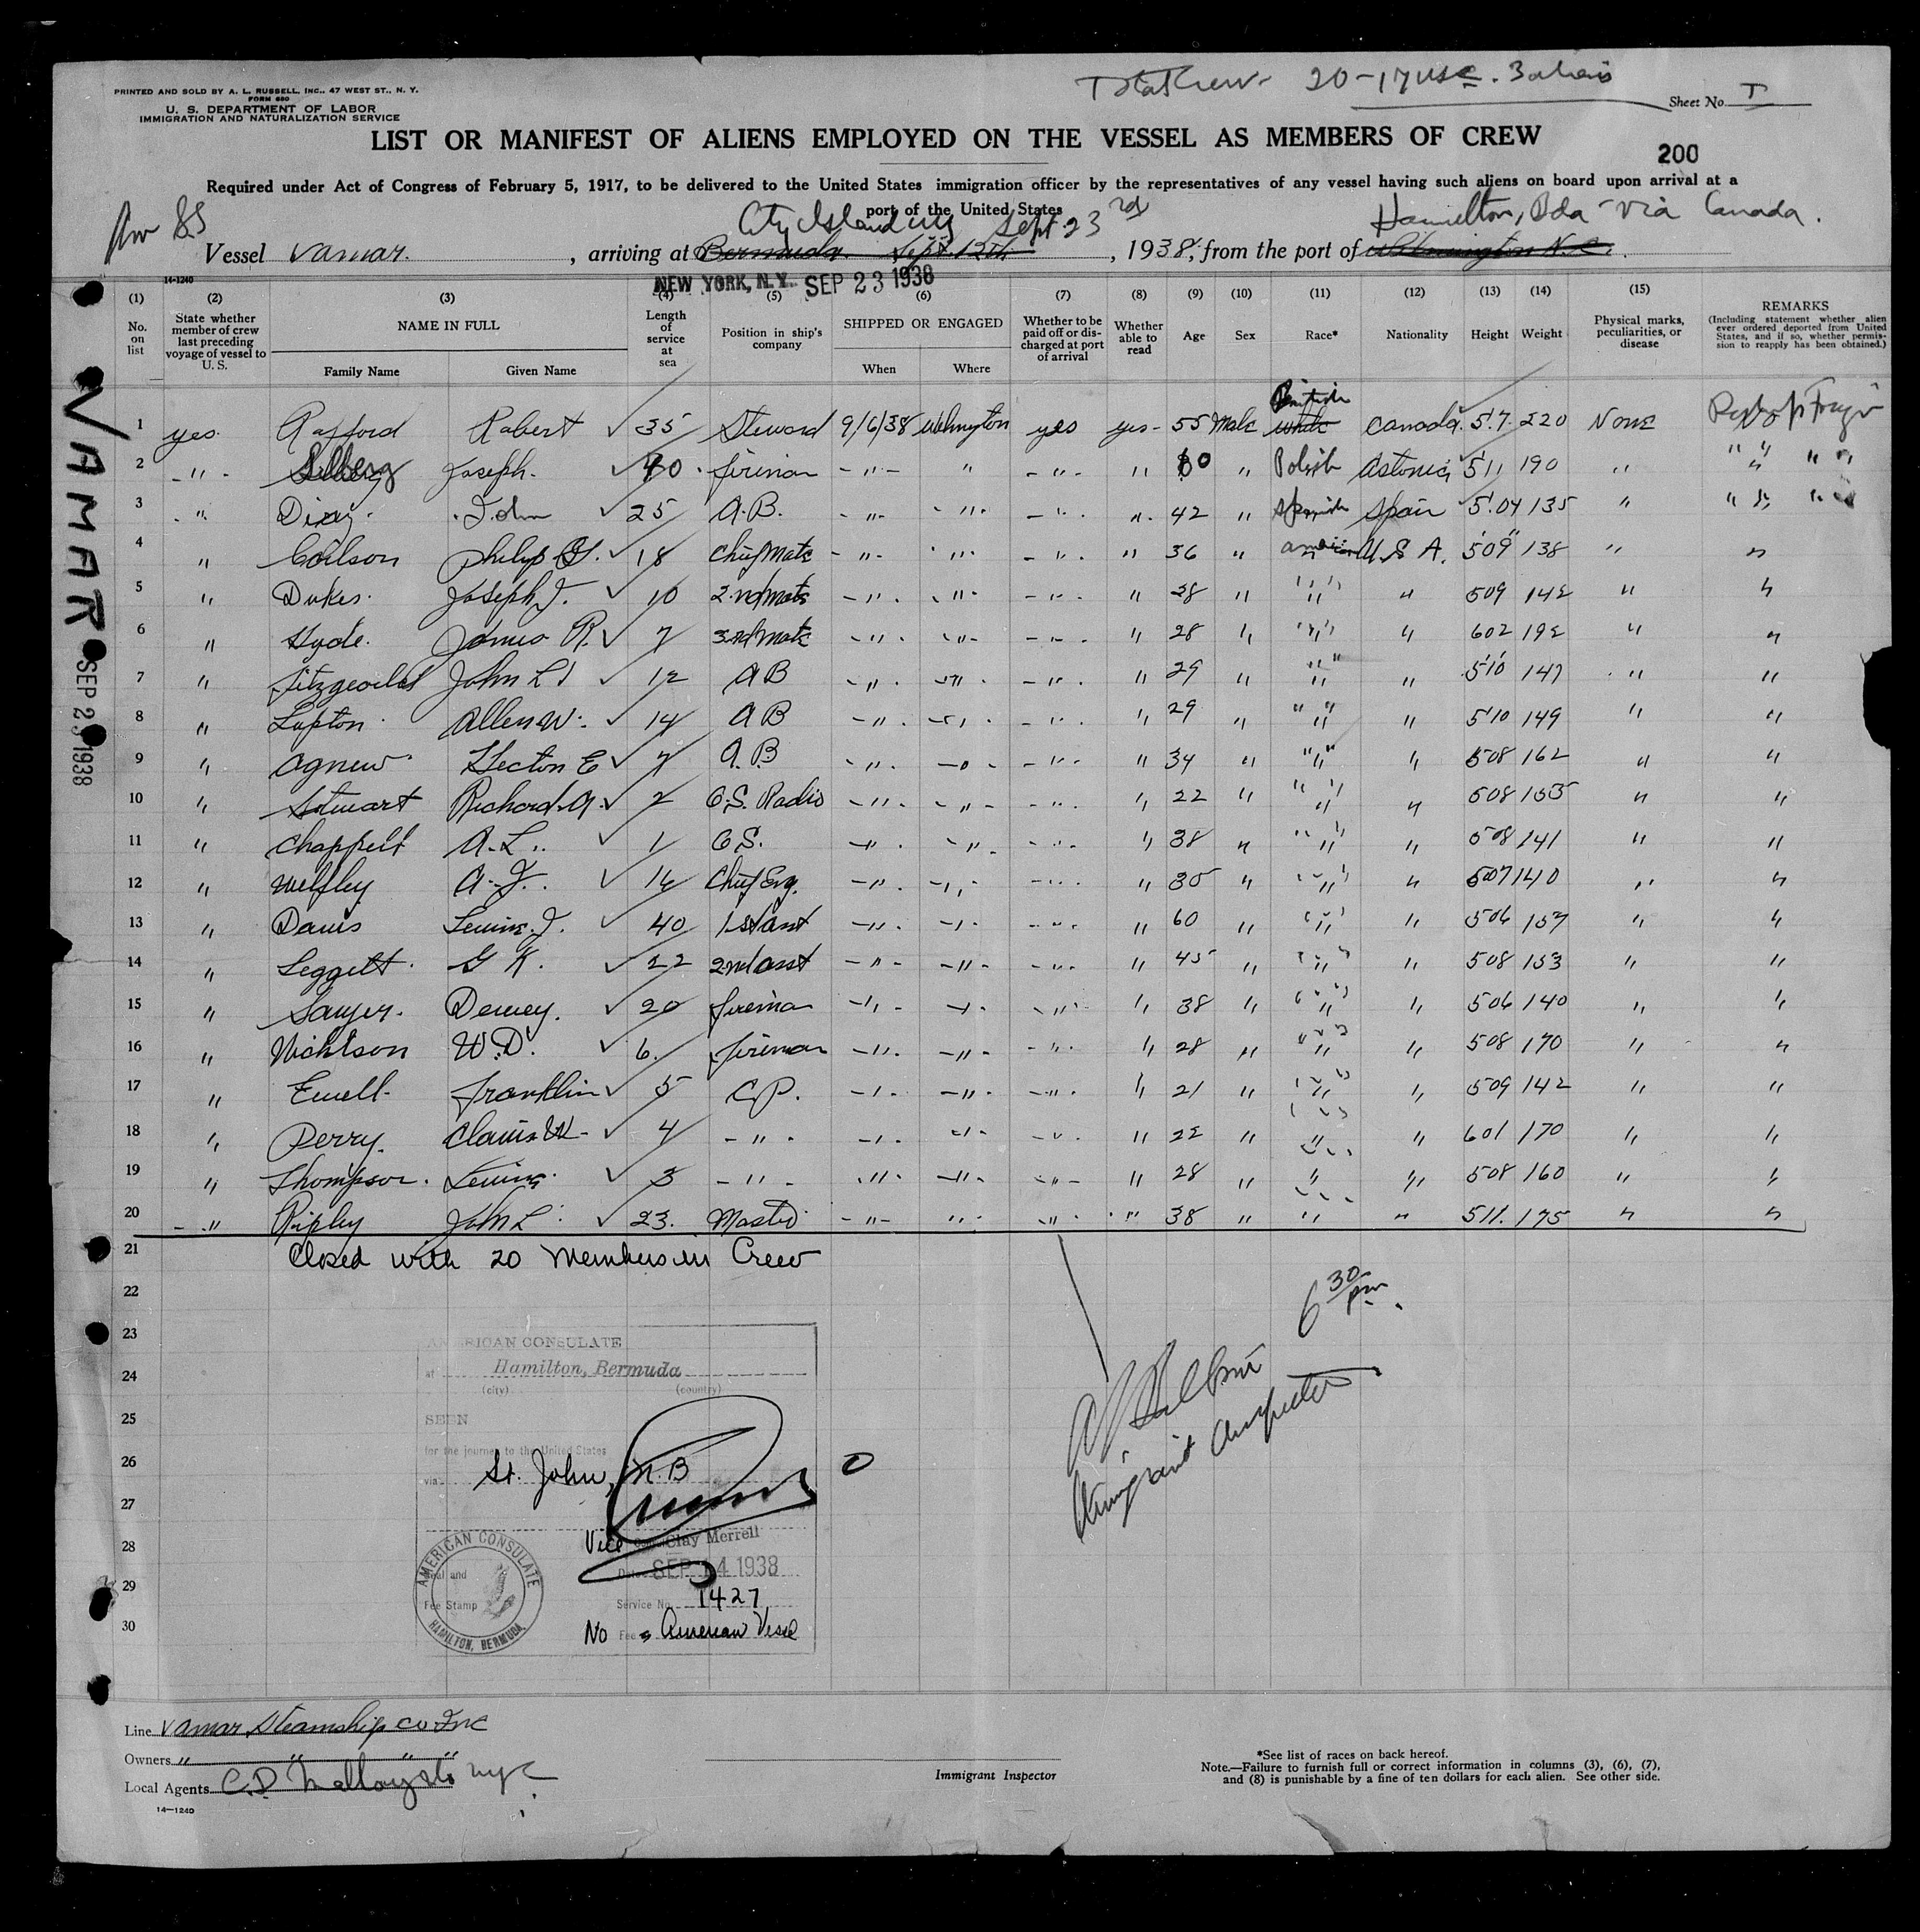 PRINTED AND SOLD BY A. L. RUSSELL, INC., 47 WEST ST., N. Y.
FORM 680
U. S. DEPARTMENT OF LABOR
IMMIGRATION AND NATURALIZATION SERVICE
Total Crew 20-17 USC. 3 aliens
Sheet No. I
LIST OR MANIFEST OF ALIENS EMPLOYED ON THE VESSEL AS MEMBERS OF CREW
200
Required under Act of Congress of February 5, 1917, to be delivered to the United States immigration officer by the representatives of any vessel having such aliens on board upon arrival at a
port of the United States
SS City Island NY Sept 23rd Hamilton, Bda - via Canada.
Vessel Vamar. , arriving at Bermuda. Sept. 12th , 1938, from the port of Wilmington N.C.
14-1240
NEW YORK, N.Y. SEP 23 1938
(1) (2) (3) (4) (5) (6) (7) (8) (9) (10) (11) (12) (13) (14) (15)
No. on list
State whether member of crew last preceding voyage of vessel to U. S.
NAME IN FULL
Family Name Given Name
Length of service at sea
Position in ship's company
SHIPPED OR ENGAGED
When Where
Whether to be paid off or discharged at port of arrival
Whether able to read
Age Sex Race* Nationality Height Weight
Physical marks, peculiarities, or disease
REMARKS
(Including statement whether alien ever ordered deported from United States, and if so, whether permission to reapply has been obtained.)
VAMAR SEP 23 1938
1 yes. Robert ✓ 35 Steward 9/6/38 Wilmington yes yes- 55 Male British white Canada 5.7. 220 None
2 " Joseph. ✓ 40 fireman " " " " 60 " Polish 511 190 "
3 " Diaz. John ✓ 25 A.B. " " " " 42 " Spanish Spain 5.04 135 "
4 " Philip ✓ 18 Chief Mate " " " " 36 " american U.S A. 509 138 " "
5 " Dukes. Joseph J. ✓ 10 2nd mate " " " " 38 " " " 509 142 " "
6 " Hyde. James R. ✓ 7 3rd mate " " " " 28 " " " 602 192 " "
7 " Fitzgerald John L ✓ 12 AB " " " " 29 " " " 510 147 " "
8 " Lupton Allen W. ✓ 14 AB " " " " 29 " " " 510 149 " "
9 " Agnew Hector E ✓ 7 A.B " " " " 34 " " " 508 162 " "
10 " Stewart Richard A. ✓ 2 O.S. Radio " " " " 22 " " " 508 155 " "
11 " Chappell A.L. ✓ 1 O.S. " " " " 38 " " " 508 141 " "
12 " A. J. ✓ 14 Chief Eng. " " " " 35 " " " 507 140 " "
13 " Davis J. ✓ 40 1st asst " " " " 60 " " " 506 157 " "
14 " Leggett G K. ✓ 22 2nd asst " " " " 45 " " " 508 153 " "
15 " Sawyer. Dewey. ✓ 20 fireman " " " " 38 " " " 506 140 " "
16 " W.D. ✓ 6. fireman " " " " 28 " " " 508 170 " "
17 " Ewell. Franklin ✓ 5 C.P. " " " " 21 " " " 509 142 " "
18 " Perry. ✓ 4 " " " " " 22 " " " 601 170 " "
19 " Thompson. ✓ 3 " " " " " 28 " " " 508 160 " "
20 " Ripley John L ✓ 23. Master " " " " 38 " " " 511. 175 " "
21 Closed with 20 Members in Crew
22
23
24
25
26
27
28
29
30
6 30 pm.
Immigrant Inspector
AMERICAN CONSULATE
at Hamilton, Bermuda
(city) (country)
SEEN
for the journey to the United States
via St. John, N.B
O
Vice Clay Merrell
Date SEP 14 1938
Service No. 1427
No Fee American Vessel
Seal and
Fee Stamp
AMERICAN CONSULATE
HAMILTON, BERMUDA
Line Vamar Steamship Co Inc
Owners " " " "
Local Agents C.D. NYC
14-1240
Immigrant Inspector
*See list of races on back hereof.
Note.—Failure to furnish full or correct information in columns (3), (6), (7),
and (8) is punishable by a fine of ten dollars for each alien. See other side.